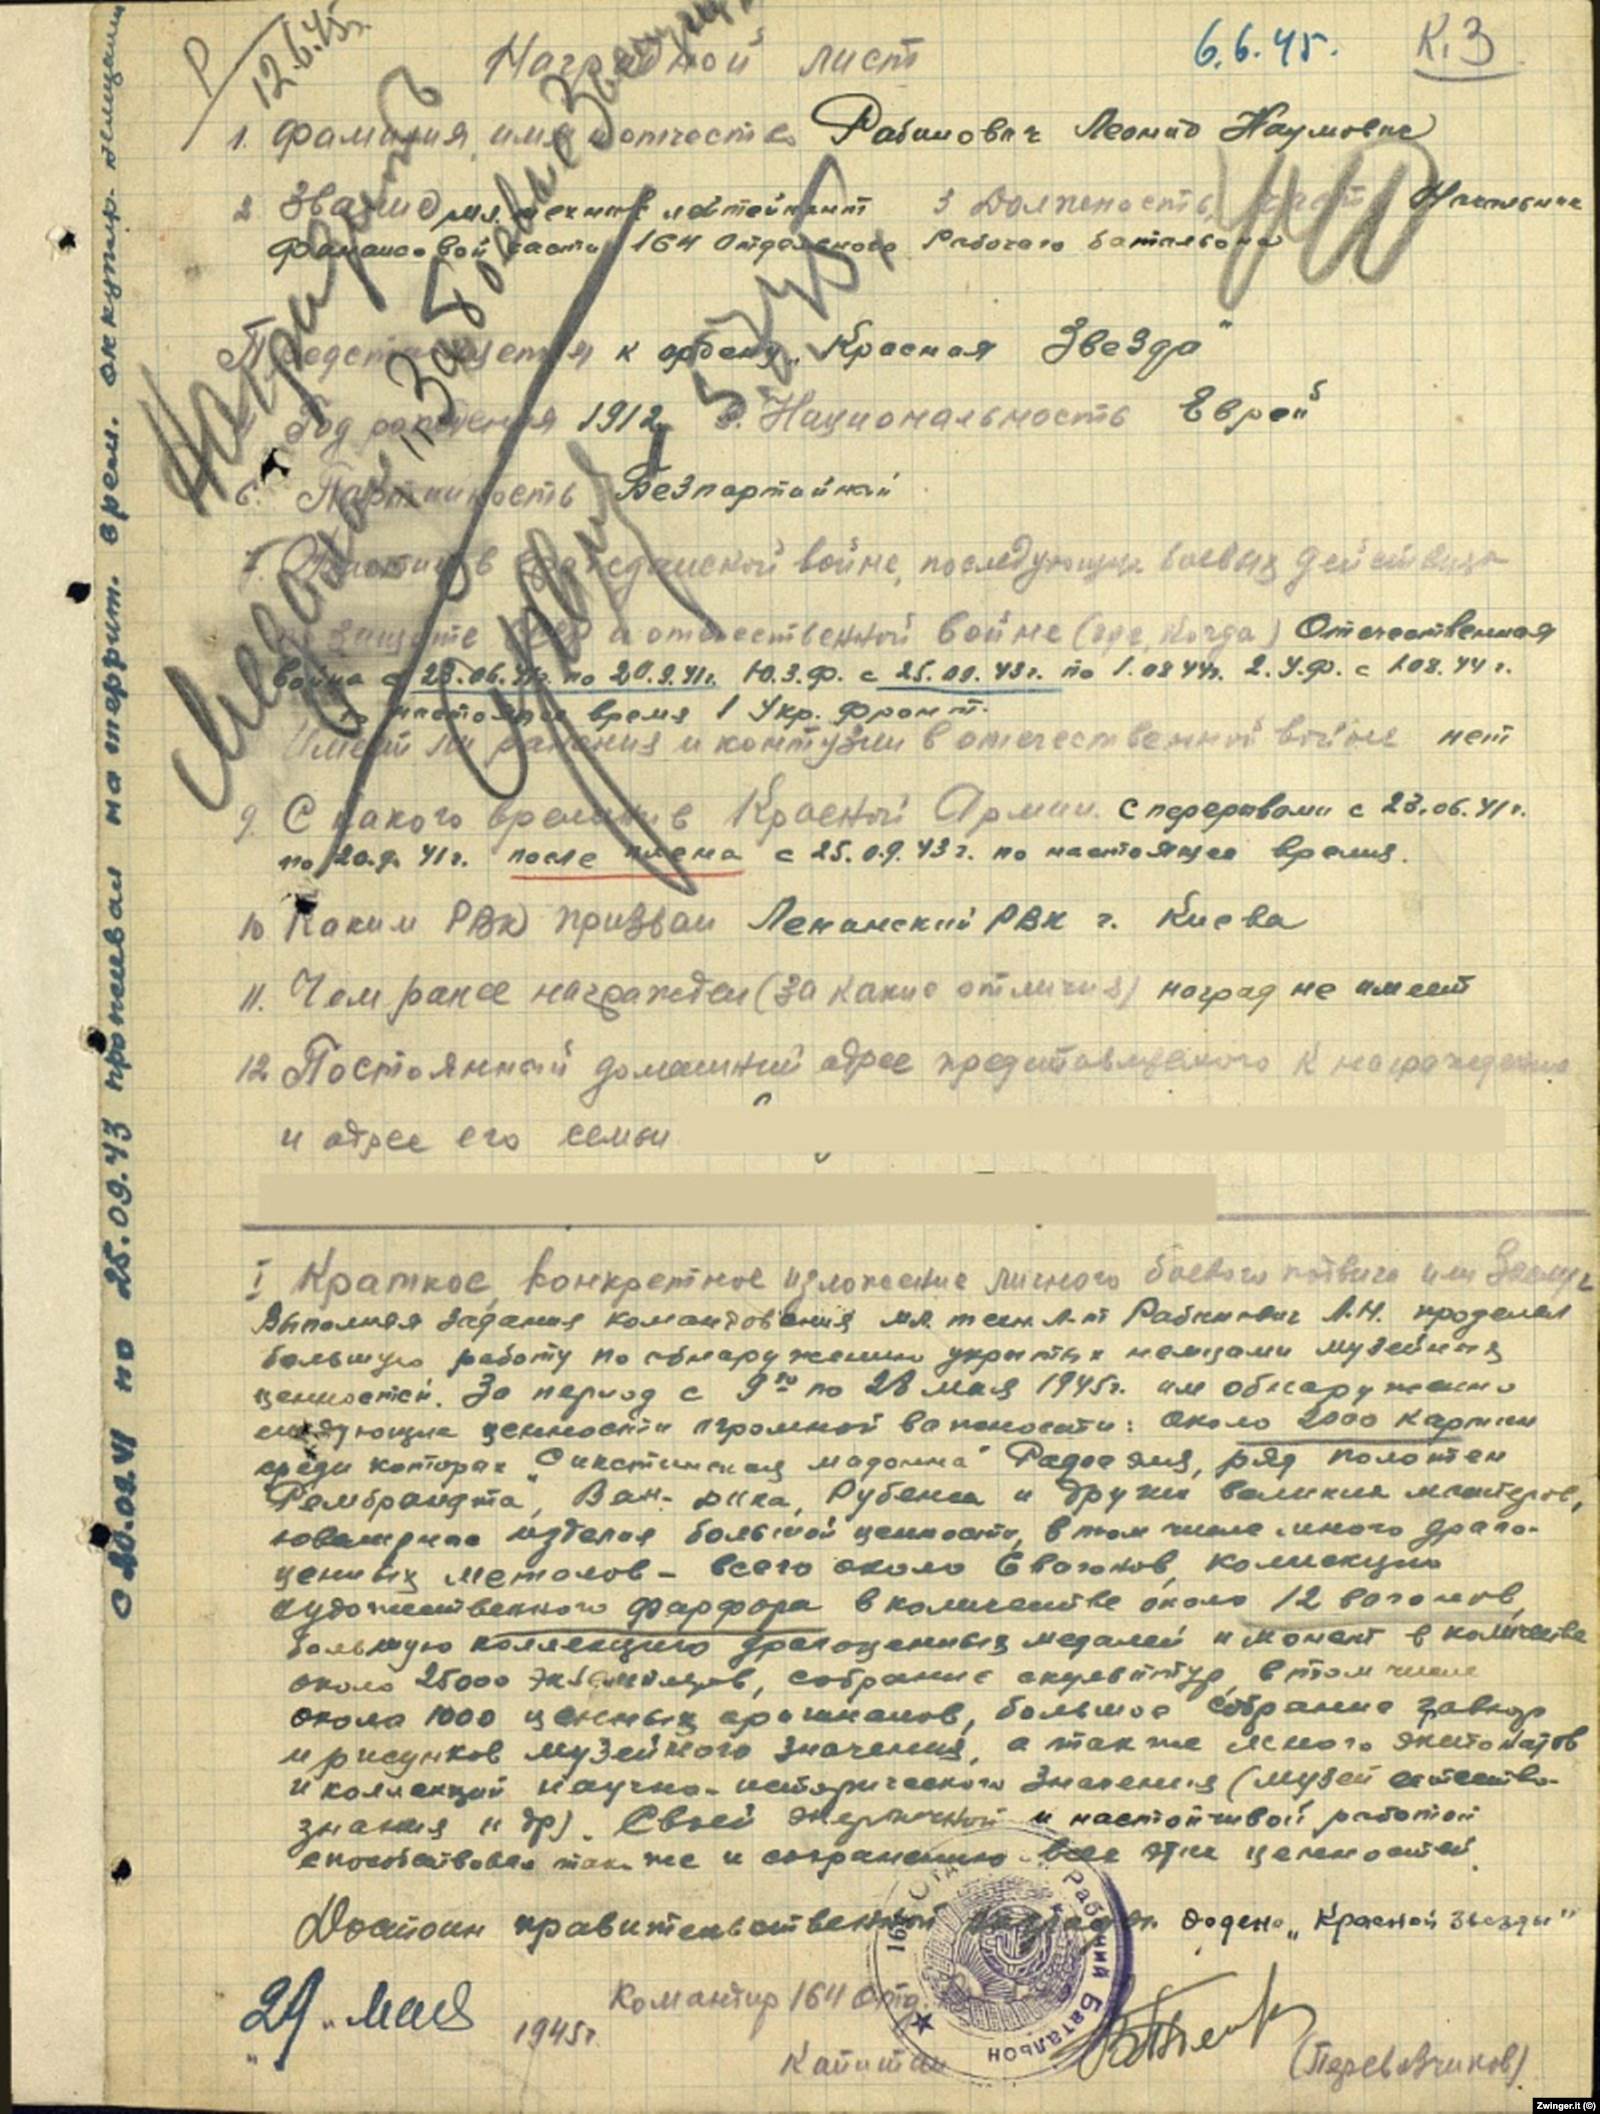 Р
12.6.45г.
Наградной лист
6.6.45.
К.З
1. Фамилия, имя и отчество Рабинович Леонид Наумович
2 Звание мл. техник лейтенант 3 Должность, часть Начальник
Финансовой части 164 Отдельного Рабочего батальона
Представляется к ордену „Красная Звезда"
Год рождения 1912 5. Национальность Еврей
6. Партийность Безпартайный
7. Участие в гражданской войне, последующих боевых действиях
по защите СССР и отечественной войне (где, когда) Отечественная
война с 23.06.41г. по 20.9.41г. Ю.З.Ф. с 25.09.43г. по 1.08 44г. 2.У.Ф. с 1.08.44 г.
по настоящее время 1 Укр. Фронт.
Имеет ли ранения и контузии в отечественной войне нет
9. С какого времени в Красной Армии с перерывами с 23.06.41г.
по 20.9.41г. после плена с 25.09.43г. по настоящее время.
10 Каким РВК призван Ленинский РВК г. Киева
11. Чем ранее награжден (за какие отличия) наград не имеет
12 Постоянный домашний адрес представляемого к награждению
и адрес его семьи
I Краткое, конкретное изложение личного боевого подвига или заслуг
Выполняя задания командования мл. техн. л-т Рабинович Л.Н. проделал
большую работу по обнаружению укрытых немцами музейных
ценностей. За период с 9го по 28 мая 1945г. им обнаружено
следующие ценности огромной важности: около 2000 картин
среди которых „Сикстинская мадонна" Рафаэля, ряд полотен
Рембрандта, Ван-Дика, Рубенса и других великих мастеров,
ювелирные изделия большой ценности, в том числе много драго-
ценных металов – всего около 6 вагонов, коллекцию
художественного фарфора в количестве около 12 вагонов,
большую коллекцию драгоценных медалей и монет в количестве
около 25000 экземпляров, собрание скульптур, в том числе
около 1000 ценных оригиналов, большое собрание гравюр
и рисунков музейного значения, а так же много экспонатов
и коллекций научно-исторического значения (музей естество-
знания и др). Своей энергичной и настойчивой работой
способствовал так же и сохранению всех этих ценностей.
Достоин правительственной награды ордена „Красной Звезды"
„29" Мая 1945г.
Командир 164 Отд.
Капитан
(Перевозчиков)
Рабочий Батальон
Наградить
Медалью „За Боевые Заслуги"
С 20.09.41 по 25.09.43 проживал на территр. врем. оккупир. немцами
Zwinger.it (©)